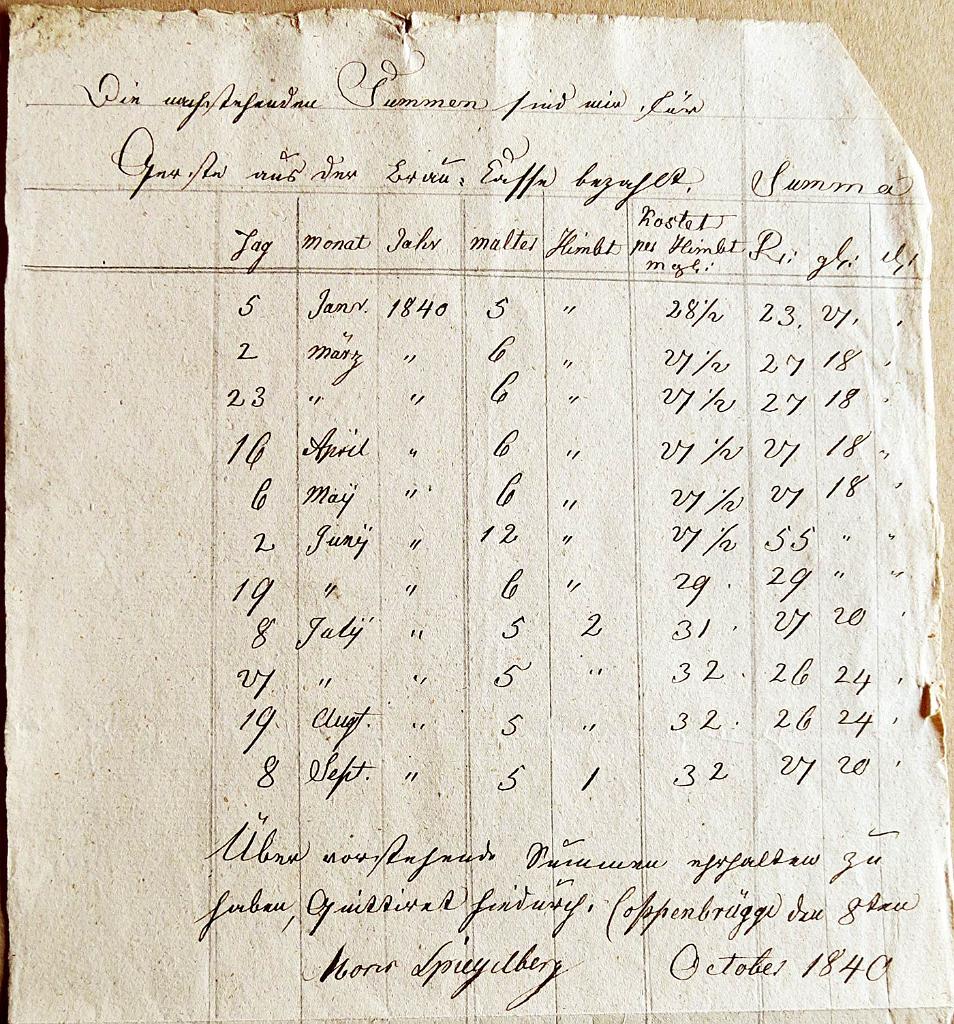 Die nachstehenden Summen sind mir für
Gerste aus der Brau: Casse bezahlt. Summa
Tag Monat Jahr malter Himbt Kostet per Himbt mgl: R: gl: d:
5 Janr. 1840 5 " 28 1/2 23. 27. "
2 März " 6 " 27 1/2 27 18 "
23 " " 6 " 27 1/2 27 18 "
16 April " 6 " 27 1/2 27 18 "
6 Maÿ " 6 " 27 1/2 27 18 "
2 Junÿ " 12 " 27 1/2 55 " "
19 " " 6 " 29. 29 " "
8 Julÿ " 5 2 31. 27 20 "
27 " " 5 " 32. 26 24 "
19. Augt. " 5 " 32. 26 24 "
8 Sept. " 5 1 32 27 20 "
Über vorstehende Summen erhalten zu
haben, Quittiret hiedurch. Coppenbrügge den 8ten
Moses Spiegelberg October 1840